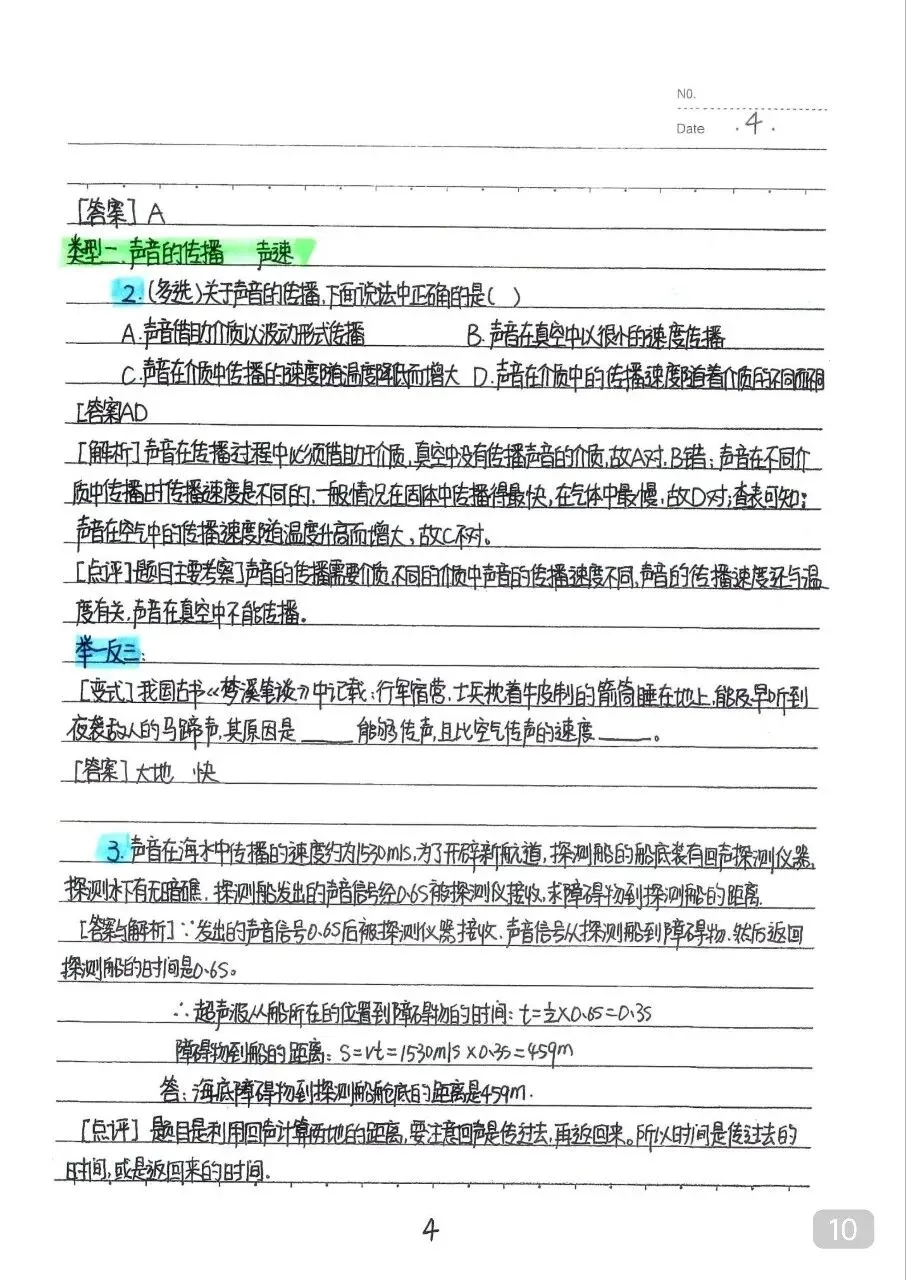 NO.
Date .4.
[答案] A
类型二.声音的传播 声速
2.(多选)关于声音的传播,下面说法中正确的是( )
A.声音借助介质以波动形式传播 B.声音在真空中以很小的速度传播
C.声音在介质中传播的速度随温度降低而增大 D.声音在介质中的传播速度随着介质的不同而不同
[答案]AD
[解析]声音在传播过程中必须借助于介质,真空中没有传播声音的介质,故A对,B错;声音在不同介
质中传播时传播速度是不同的,一般情况在固体中传播得最快,在气体中最慢,故D对;查表可知:
声音在空气中的传播速度随温度升高而增大,故C不对。
[点评]题目主要考察了声音的传播需要介质,不同的介质中声音的传播速度不同,声音的传播速度还与温
度有关,声音在真空中不能传播。
举一反三:
[变式]我国古书《梦溪笔谈》中记载:行军宿营,士兵枕着牛皮制的箭筒睡在地上,能及早听到
夜袭敌人的马蹄声,其原因是____能够传声,且比空气传声的速度____。
[答案]大地 快
3.声音在海水中传播的速度约为1530m/s,为了开辟新航道,探测船的船底装有回声探测仪器,
探测水下有无暗礁,探测船发出的声音信号经0.6s被探测仪接收,求障碍物到探测船的距离.
[答案与解析]∵发出的声音信号0.6s后被探测仪器接收,声音信号从探测船到障碍物,然后返回
探测船的时间是0.6s。
∴超声波从船所在的位置到障碍物的时间:t=½×0.6s=0.3s
障碍物到船的距离:S=vt=1530m/s×0.3s=459m
答:海底障碍物到探测船舱底的距离是459m.
[点评]题目是利用回声计算两地的距离,要注意回声是传过去,再返回来。所以时间是传过去的
时间,或是返回来的时间.
4
10